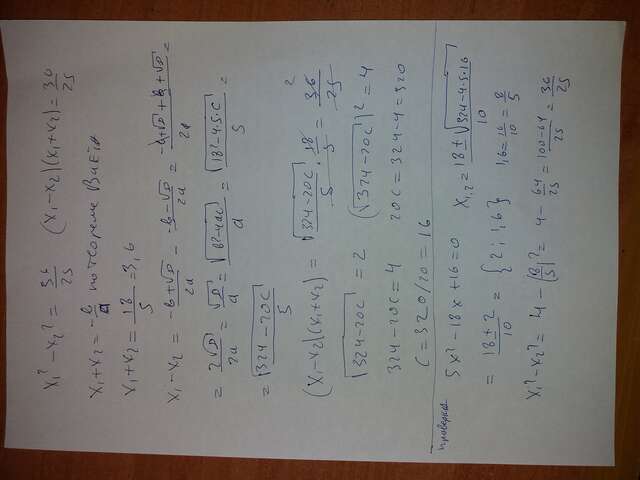 x₁² - x₂² = 36/25 (x₁ - x₂)(x₁ + x₂) = 36/25
x₁ + x₂ = -b/a по теореме Виета
x₁ + x₂ = 18/5 = 3,6
x₁ - x₂ = (-b + √D)/2a - (-b - √D)/2a = (-b + √D + b + √D)/2a =
= 2√D/2a = √D/a = √(b² - 4ac)/a = √(18² - 4·5·C)/5 =
= √(324 - 20C)/5
(x₁ - x₂)(x₁ + x₂) = √(324 - 20C)/5 · 18/5 = 36/25 2
√(324 - 20C) = 2 (√(324 - 20C))² = 4
324 - 20C = 4 20C = 324 - 4 = 320
C = 320/20 = 16
проверка
5x² - 18x + 16 = 0 x₁,₂ = (18 ± √(324 - 4·5·16))/10
= (18 ± 2)/10 = {2; 1,6} 1,6 = 16/10 = 8/5
x₁² - x₂² = 4 - (8/5)² = 4 - 64/25 = (100 - 64)/25 = 36/25